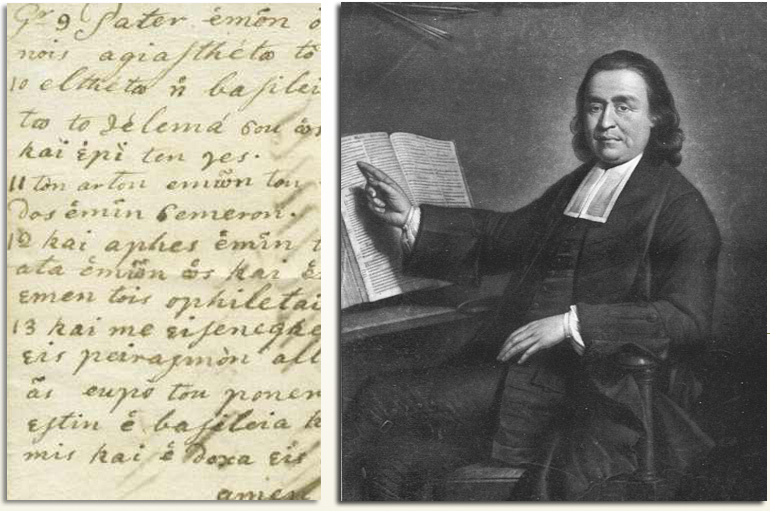 Gr 9 Pater émôn ó
nois agiasthétω tô
10 elthétω ή basilei
tω to θélemá sou ώs
kaï épï ten ges.
11 tòn arton emωn tou
dos émin semeron.
12 kai aphes émin t
ata émωn ώs kai é
emen tois ophiletai
13 kai me eisenegke
eis peirasmòn all
ãs eupò tou poner
estin é basileia k
mis kai é doxa eis
amen